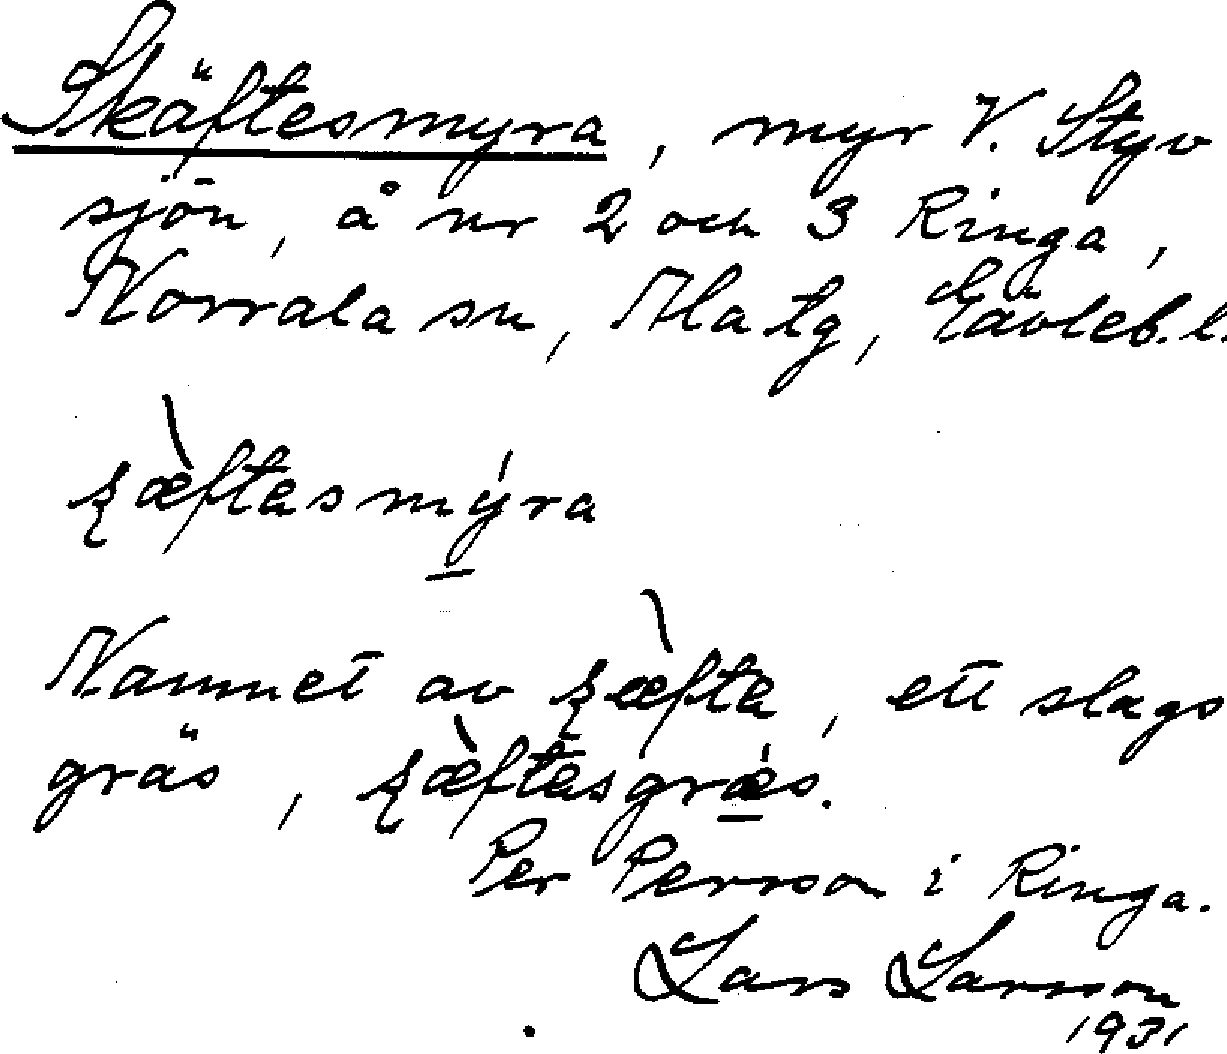 Skäftesmyra, myr V. Styv
sjön, å nr 2 och 3 Ringa,
Norrala sn, Ala tg, Gävleb. l.
ʂæ̀ftasmýra
Namnet av ʂæ̀fta, ett slags
gräs, ʂæ̀ftasgrǽs.
Per Persson i Ringa.
Lars Larsson
1931